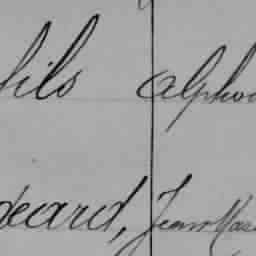 fils alphon
deard, Jean Mar